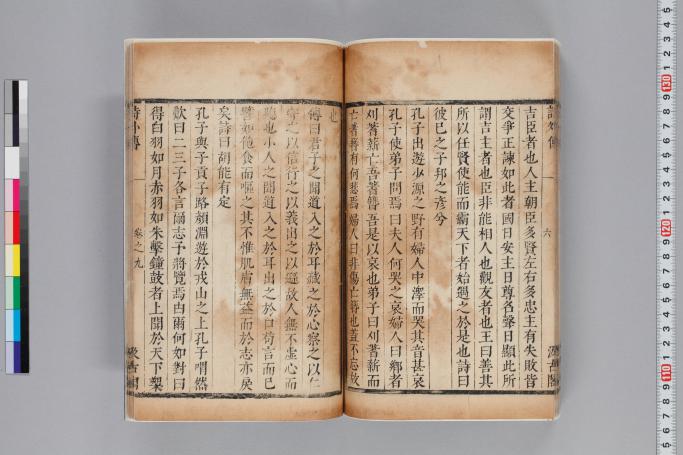 六
吉臣者也人主朝臣多賢左右多忠主有失敗皆
交爭正諫如此者國日安主日尊名聲日顯此所
謂吉主者也臣非能相人也觀友者也王曰善其
所以任賢使能而霸天下者始遇之於是也詩曰
彼己之子邦之彥兮
孔子出遊少源之野有婦人中澤而哭其音甚哀
孔子使弟子問焉曰夫人何哭之哀婦人曰鄉者
刈蓍薪亡吾蓍簪吾是以哀也弟子曰刈蓍薪而
亡蓍簪有何悲焉婦人曰非傷亡簪也蓋不忘故
也
傳曰君子之聞道入之於耳藏之於心察之以仁
守之以信行之以義出之以遜故人無不虛心而
聽也小人之聞道入之於耳出之於口苟言而已
譬如飽食而嘔之其不惟肌膚無益而於志亦戾
矣詩曰胡能有定
孔子與子貢子路顏淵遊於戎山之上孔子喟然
歎曰二三子各言爾志予將覽焉由爾何如對曰
得白羽如月赤羽如朱擊鐘鼓者上聞於天下槊
詩外傳
卷之九
汲古閣
130
120
110